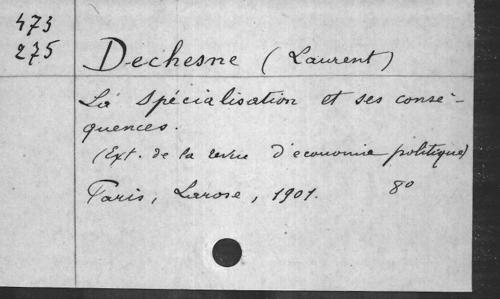 473
275
Dechesne (Laurent)
La Spécialisation et ses consé-
quences.
(Ext. de la revue d'economie politique)
Paris, Larose, 1901. 8o